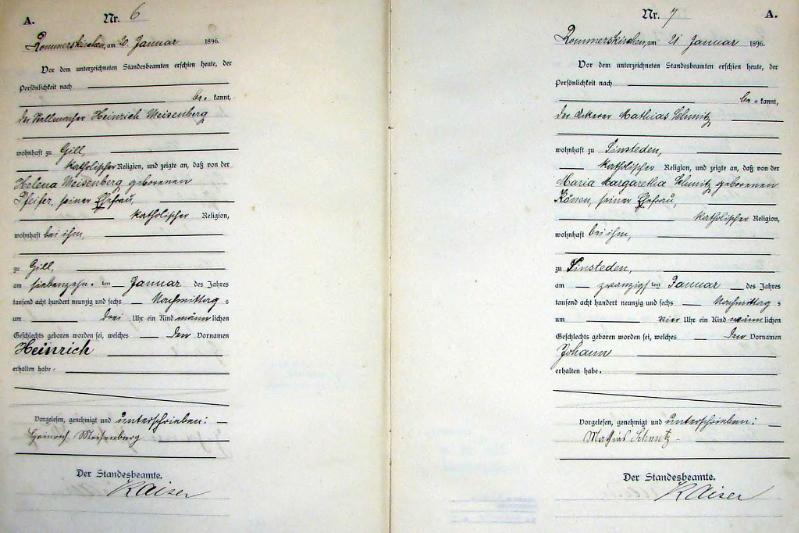 A. Nr. 6
Rommerskirchen, am 20 Januar 1896.
Vor dem unterzeichneten Standesbeamten erschien heute, der
Persönlichkeit nach
be= kannt,
der Heinrich Meisenberg
wohnhaft zu Gill,
katholischer Religion, und zeigte an, daß von der
Helena Meisenberg geborenen
Pfeifer, seiner Ehefrau,
katholischer Religion,
wohnhaft bei ihm,
zu Gill,
am siebenzehn= ten Januar des Jahres
tausend acht hundert neunzig und sechs Nachmittag=s
um drei Uhr ein Kind männlichen
Geschlechts geboren worden sei, welches den Vornamen
Heinrich
erhalten habe.
Vorgelesen, genehmigt und unterschrieben:
Heinrich Meisenberg
Der Standesbeamte.
Kaiser
Nr. 7 A.
Rommerskirchen, am 21 Januar 1896.
Vor dem unterzeichneten Standesbeamten erschien heute, der
Persönlichkeit nach
be= kannt,
der Ackerer Mathias Schmitz
wohnhaft zu Sinsteden,
katholischer Religion, und zeigte an, daß von der
Maria Margaretha Schmitz geborenen
Könen, seiner Ehefrau,
katholischer Religion,
wohnhaft bei ihm,
zu Sinsteden,
am zwanzigsten Januar des Jahres
tausend acht hundert neunzig und sechs Nachmittag=s
um vier Uhr ein Kind männlichen
Geschlechts geboren worden sei, welches den Vornamen
Johann
erhalten habe.
Vorgelesen, genehmigt und unterschrieben:
Mathias Schmitz
Der Standesbeamte.
Kaiser